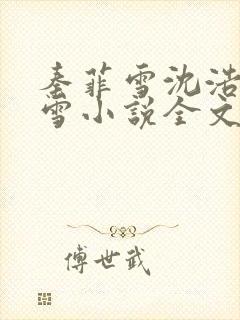 秦菲雪沈浩
雪小说全文
傅世武